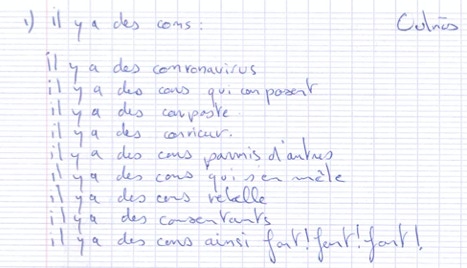 1) il y a des cons :
il y a des conronavirus
il y a des cons qui composent
il y a des composte
il y a des
il y a des cons parmis d'autres
il y a des cons qui s'en mèle
il y a des cons rebelle
il y a des consentants
il y a des cons ainsi font! font! font!